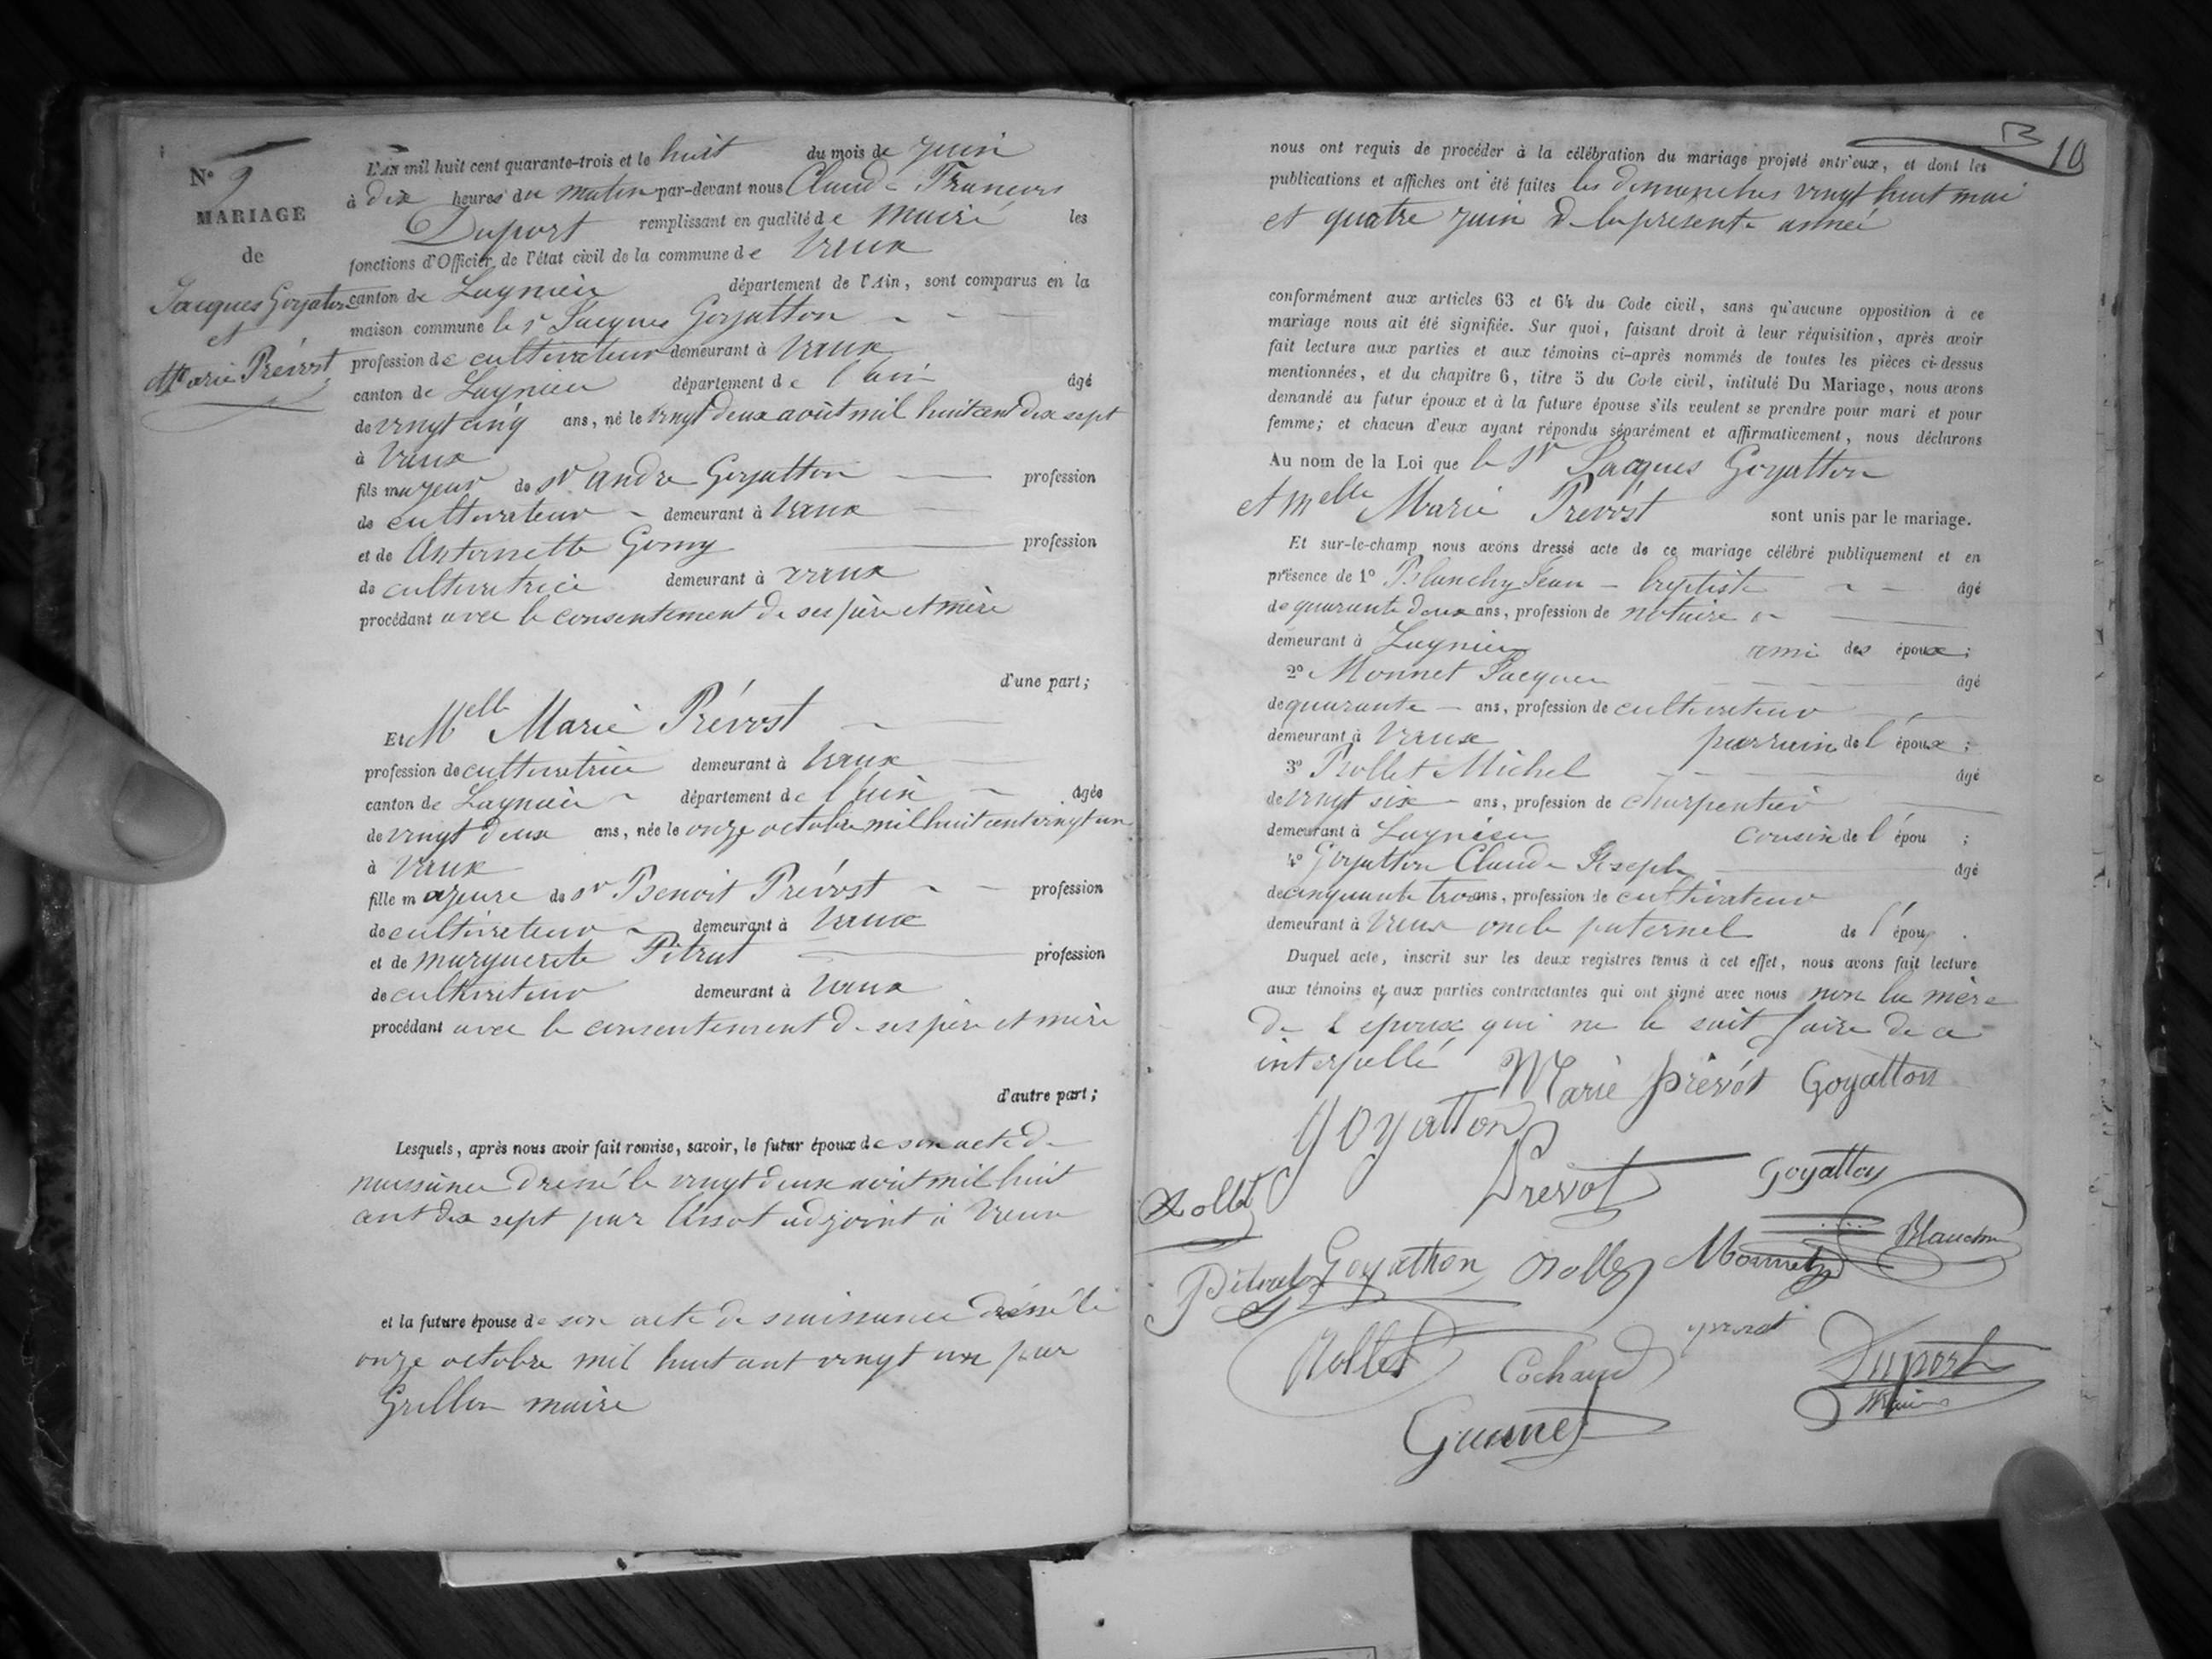 N° 9
MARIAGE
de
Jacques Goyatton
et
Marie Prévost
L'AN mil huit cent quarante-trois et le huit du mois de juin
à dix heures du matin par-devant nous Claude François
Duport remplissant en qualité de maire les
fonctions d'Officier de l'état civil de la commune de Vaux
canton de Lagnieu département de l'Ain, sont comparus en la
maison commune le Sr Jacques Goyatton
profession de cultivateur demeurant à Vaux
canton de Lagnieu département de l'ain âgé
de vingt cinq ans, né le vingt deux août mil huit cent dix sept
à Vaux
fils majeur de Sr andré Goyatton profession
de cultivateur demeurant à Vaux
et de Antoinette Gomy profession
de cultivatrice demeurant à vaux
procédant avec le consentement de ses père et mère
d'une part;
Et Melle Marie Prévost
profession de cultivatrice demeurant à Vaux
canton de Lagnieu département de l'ain âgée
de vingt deux ans, née le onze octobre mil huit cent vingt un
à Vaux
fille majeure de Sr Benoit Prévost profession
de cultivateur demeurant à Vaux
et de marguerite Pitrat profession
de cultivateur demeurant à Vaux
procédant avec le consentement de ses père et mère
d'autre part;
Lesquels, après nous avoir fait remise, savoir, le futur époux de son acte de
naissance dressé le vingt deux août mil huit
cent dix sept par adjoint à Vaux
et la future épouse de son acte de naissance dressé le
onze octobre mil huit cent vingt un par
Grillon maire
B 10
nous ont requis de procéder à la célébration du mariage projeté entr'eux, et dont les
publications et affiches ont été faites les dimanches vingt huit mai
et quatre juin de la présente année
conformément aux articles 63 et 64 du Code civil, sans qu'aucune opposition à ce
mariage nous ait été signifiée. Sur quoi, faisant droit à leur réquisition, après avoir
fait lecture aux parties et aux témoins ci-après nommés de toutes les pièces ci-dessus
mentionnées, et du chapitre 6, titre 5 du Code civil, intitulé Du Mariage, nous avons
demandé au futur époux et à la future épouse s'ils veulent se prendre pour mari et pour
femme; et chacun d'eux ayant répondu séparément et affirmativement, nous déclarons
Au nom de la Loi que le Sr Jacques Goyatton
et Melle Marie Prévost sont unis par le mariage.
Et sur-le-champ nous avons dressé acte de ce mariage célébré publiquement et en
présence de 1° Blanchy Jean baptiste âgé
de quarante deux ans, profession de notaire
demeurant à Lagnieu ami des époux;
2° Monnet Jacques âgé
de quarante ans, profession de cultivateur
demeurant à Vaux parrain de l'époux;
3° Rollet Michel âgé
de vingt six ans, profession de charpentier
demeurant à Lagnieu cousin de l'épou ;
4° Goyatton Claude Joseph âgé
de cinquante trois ans, profession de cultivateur
demeurant à Vaux oncle paternel de l'époux.
Duquel acte, inscrit sur les deux registres tenus à cet effet, nous avons fait lecture
aux témoins et aux parties contractantes qui ont signé avec nous non la mère
de l'époux qui ne le sait faire de ce
interpellé
Marie prévôt Goyatton
goyatton
Rollet Prevot Goyatton
Pitrat Goyatton Rollet Monnet Blanchy
Rollet Cochard prevot Duport
Maire